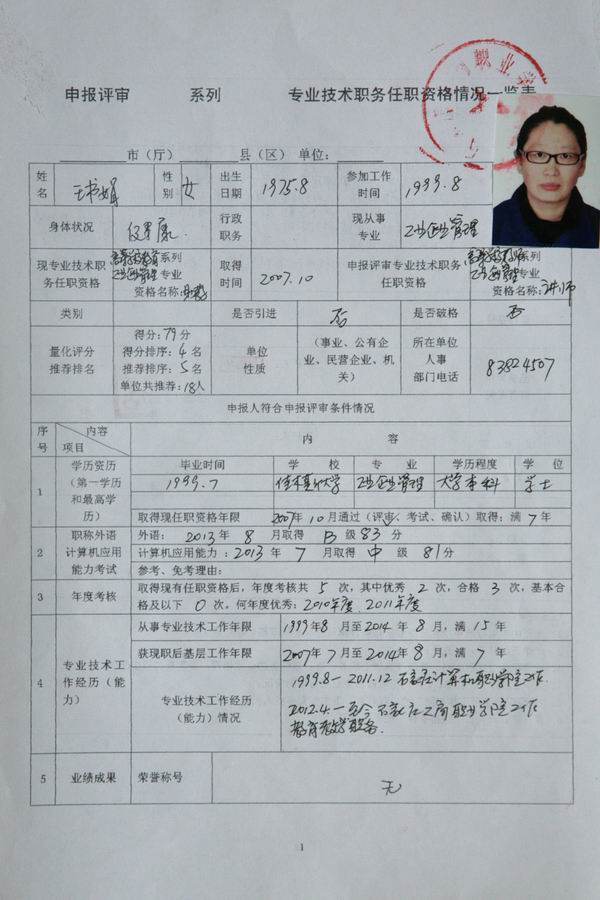 申报评审 系列 专业技术职务任职资格情况一览表
职业学
市（厅） 县（区） 单位：
姓名 王书娟 性别 女 出生日期 1975.8 参加工作时间 1999.8
身体状况 健康 行政职务 现从事专业 工业企业管理
现专业技术职务任职资格 高等学校教育系列 工业企业管理专业 资格名称： 取得时间 2007.10 申报评审专业技术职务任职资格 高等学校教师系列 工业企业管理专业 资格名称：讲师
类别 是否引进 否 是否破格 否
量化评分推荐排名 得分：79分 得分排序：4名 推荐排序：5名 单位共推荐：18人 单位性质 （事业、公有企业、民营企业、机关） 所在单位人事部门电话 83824507
申报人符合申报评审条件情况
序号 内容 项目 内 容
1 学历资历（第一学历和最高学历） 毕业时间 学 校 专 业 学历程度 学 位
1999.7 佳木斯大学 工业企业管理 大学本科 学士
取得现任职资格年限 2007年10月通过（评审、考试、确认）取得：满7年
2 职称外语计算机应用能力考试 外语：2013年8月取得B级83分
计算机应用能力：2013年7月取得中级81分
参考、免考理由：
3 年度考核 取得现有任职资格后，年度考核共5次，其中优秀2次，合格3次，基本合
格及以下0次。何年度优秀：2010年度 2011年度
4 专业技术工作经历（能力） 从事专业技术工作年限 1999年8月至2014年8月，满15年
获现职后基层工作年限 2007年7月至2014年8月，满7年
专业技术工作经历（能力）情况 1999.8—2011.12 石家庄计算机职业学院工作.
2012.4.—至今 石家庄工商职业学院工作
教育教学职务.
5 业绩成果 荣誉称号 无
1